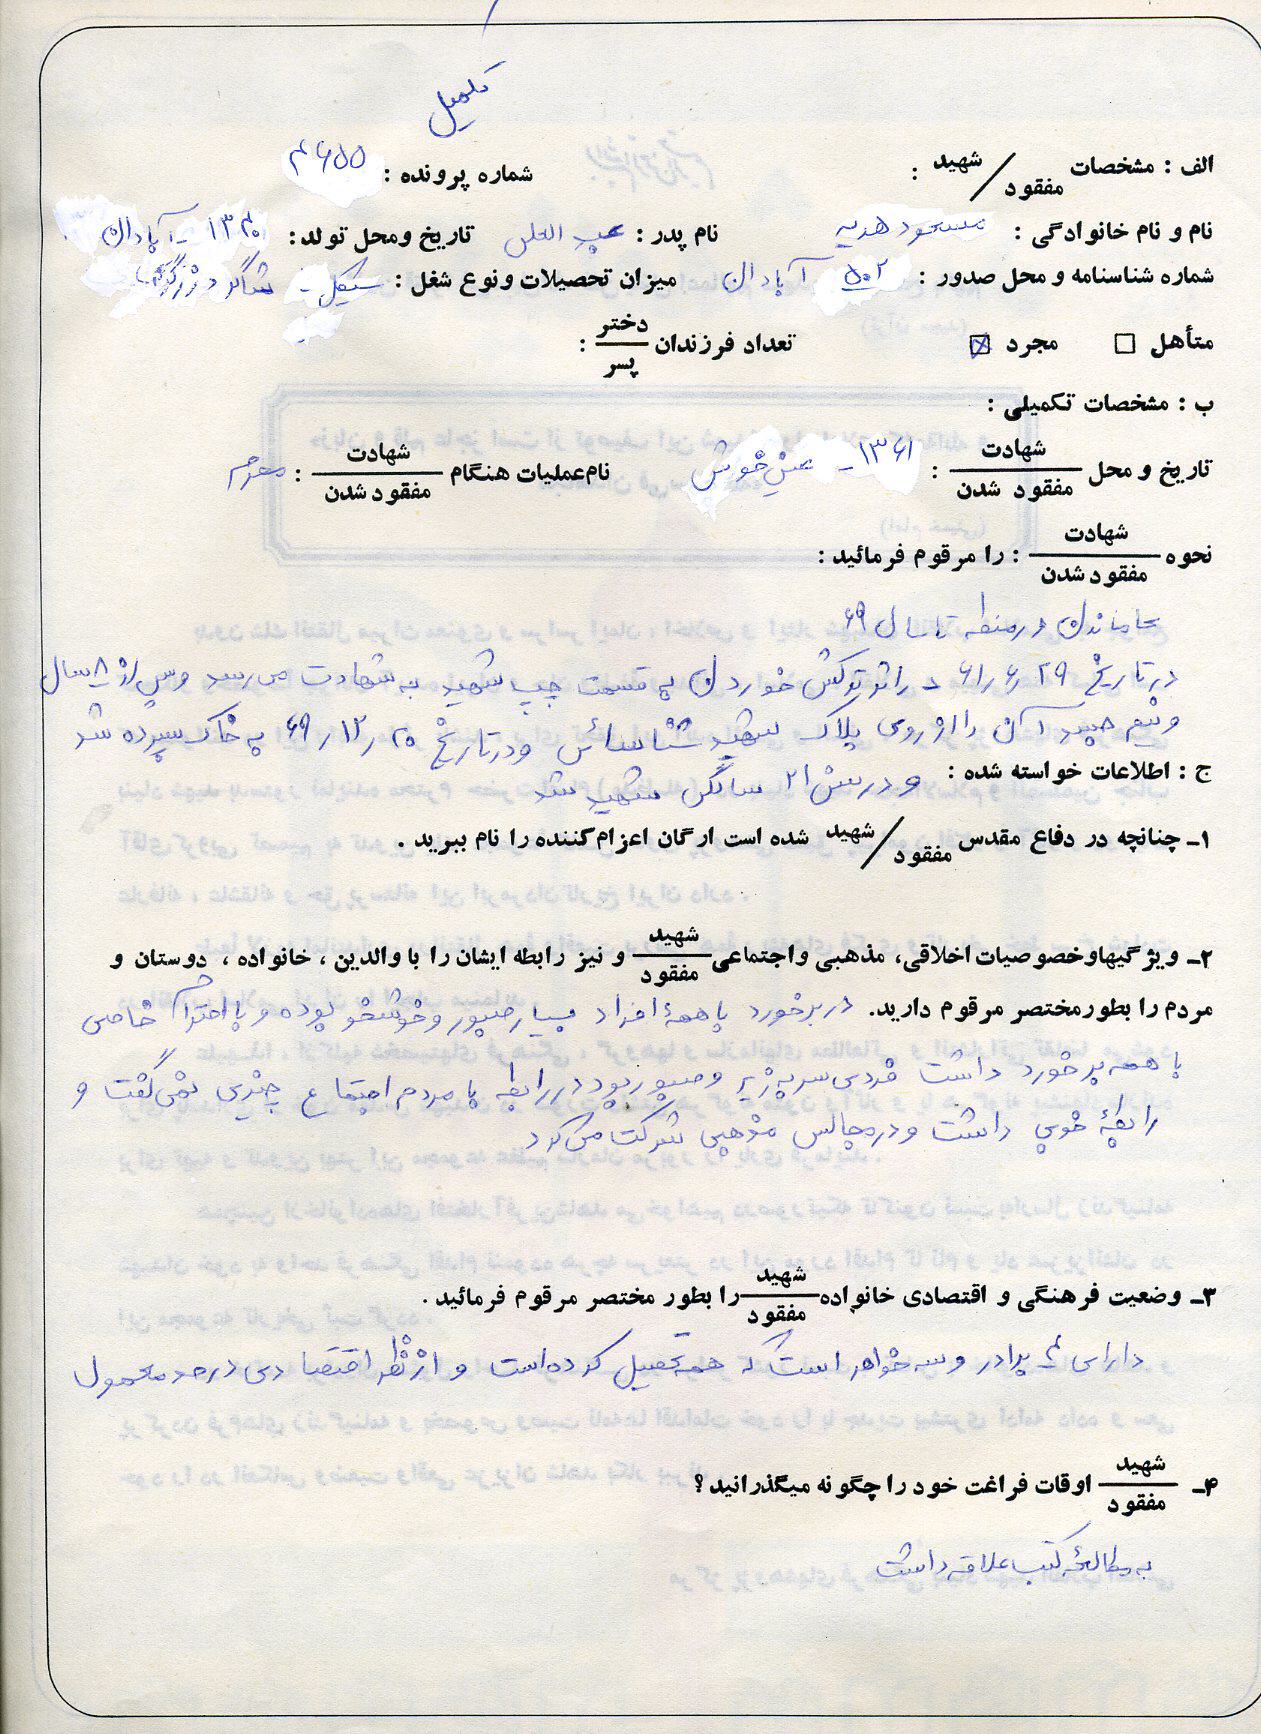 تکمیل
الف : مشخصات شهید / مفقود :
شماره پرونده : ۴۶۵۵
نام و نام خانوادگی : مسعود هدیه نام پدر : عبدالعلی تاریخ ومحل تولد : ۱۳۴۰ - آبادان
شماره شناسنامه و محل صدور : ۵۰۲ آبادان میزان تحصیلات و نوع شغل : سیکل - شاگرد
متأهل ☐ مجرد ☒ تعداد فرزندان دختر / پسر :
ب : مشخصات تکمیلی :
تاریخ و محل شهادت / مفقود شدن : ۱۳۶۱ - عین خوش نام عملیات هنگام شهادت / مفقود شدن : محرم
نحوه شهادت / مفقود شدن : را مرقوم فرمائید :
در منطقه تا سال ۶۹
در تاریخ ۲۹ ر ۶ ر ۶۱ در اثر ترکش خوردن به قسمت چپ شهید به شهادت می رسد و پس از ۸ سال
و نیم جسد آن را از روی پلاک شهید شناسائی و در تاریخ ۲۰ ر ۱۲ ر ۶۹ به خاک سپرده شد
ج : اطلاعات خواسته شده : و در سن ۲۱ سالگی شهید شد
۱ـ چنانچه در دفاع مقدس شهید / مفقود شده است ارگان اعزام کننده را نام ببرید .
۲ـ ویژگیهاوخصوصیات اخلاقی، مذهبی واجتماعی شهید / مفقود و نیز رابطه ایشان را با والدین ، خانواده ، دوستان و
مردم را بطورمختصر مرقوم دارید. در برخورد با همهٔ افراد بسیار صبور و خوشخو بوده و با احترام خاصی
با همه برخورد داشت فردی سر به زیر و صبور بود در رابطه با مردم اجتماع چیزی نمی گفت و
رابطهٔ خوبی داشت و در مجالس مذهبی شرکت می کرد
۳ـ وضعیت فرهنگی و اقتصادی خانواده شهید / مفقود را بطور مختصر مرقوم فرمائید .
دارای ۴ برادر و سه خواهر است که همه تحصیل کرده است و از نظر اقتصادی در حد معمول
۴ـ شهید / مفقود اوقات فراغت خود را چگونه میگذرانید ؟
به مطالعهٔ کتب علاقه داشت